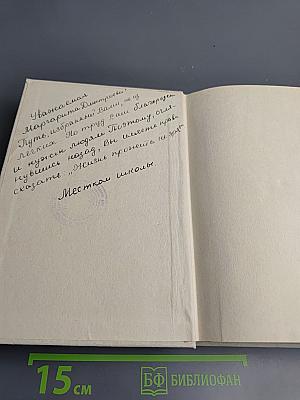 Уважаемая
Маргарита Дмитриевна!
Путь, избранный Вами, не из
легких. Но труд Ваш благороден
и нужен людям. Поэтому, огля-
нувшись назад, Вы имеете право
сказать: „Жизнь прожита не зря!"
Местком школы.
15 см
БФ БИБЛИОФАН